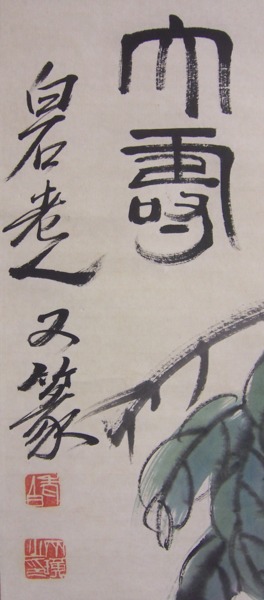 大壽
白石老人又篆